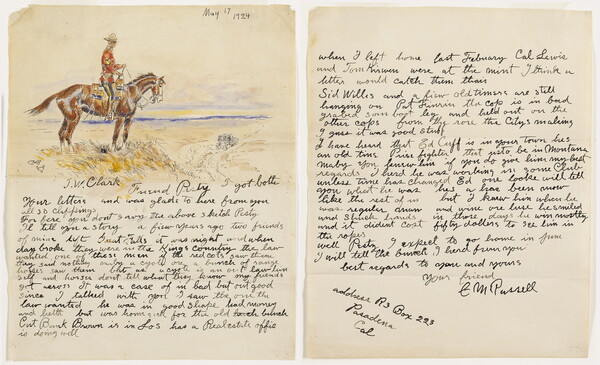 May 17
1924
I.W. Clark
Friend Pesky I got both
your letters and was glade to here from you
also clippings
For fere you dont savy the above sketch Pesky
Il tell you a story a fiew years ago two friends
of mine left Great Falls it was night and when
day broke they were in the Kings country the law
wanted one of these men if the red cots saw them
they said nothing only a cyote and a bunch of range
horses saw them but as a cyote is an out law him
self and horses dont tell what they know my friends
got across It was a case of in bad but out good
since I talked with you I saw the one the
law wanted he was in good shape had money
and helth but was home sick for the old bunch
Curt Bunk Brown is in Los has a Real estate offic
is doing well
when I left home last Febuary Cal Lewis
and Tom were at the mint I think a
letter would catch them thair
Sid Willis and a fiew old timers are still
hanging on Pat the cop is in bad
grabed som boot leg and held out on the
other cops from the rore the Citys making
I guse it was good stuff
I have heard that Ed Cuff is in your town hes
an old time Prise fighter that usto be in Montana
maby you know him if you do give him my best
regards I herd he was working in some Club
unless time has changed Ed one looke will tell
you what he was hes a has been now
like the rest of us but I knew him when he
was regular and wine ore luse he smiled
and shuck hands in those days he win mostly
and it dident cost fifty dollars to see him in
the ropes
well Pesky I expect to go home in June
I will tell the bunch I herd from you
best regards to you and yours
Your friend
C M Russell
address R3 Box 223
Pasadena
Cal